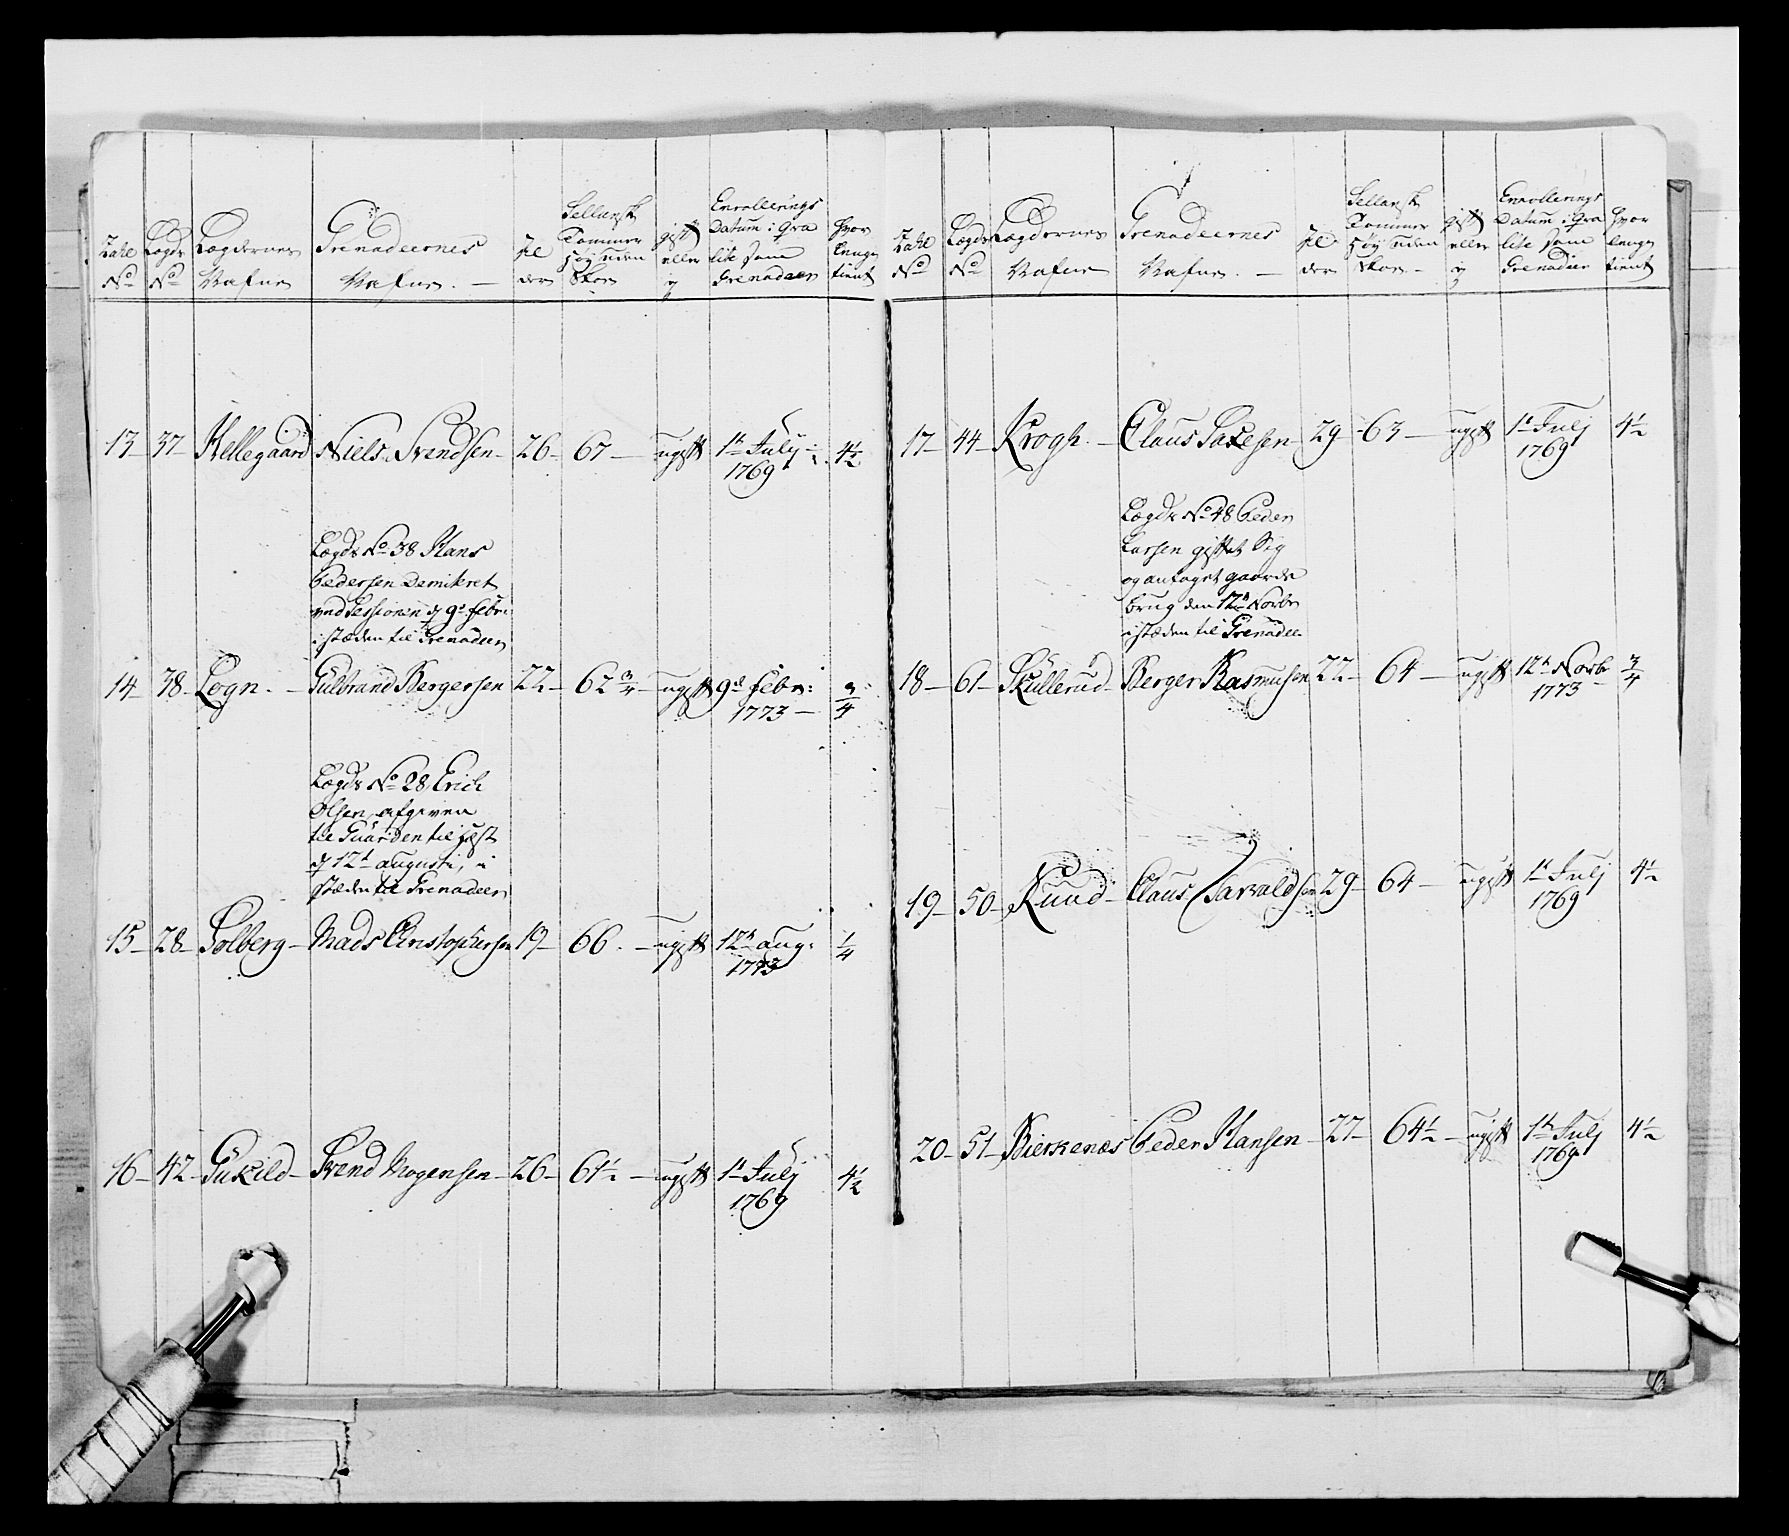 Tahl No
Lægds No
Lægdernes Nafne
Grenadeernes Nafne.
Alder
Sellansk Tommer høy uden Skoe
gift eller ej
Enrollerings Datum i Qvalite som Grenadeer
hvor længe tient
13 37 Hellegaard Niels Svendsen 26 67 ugift 1te Julÿ 1769 4 1/2
Lægds No 38 Hans
Pedersen Demiteret
ved Sessionen d 9de febr:
i stæden til Grenadeer
14 38 Logn. Gulbrand Bergersen 22 62 3/4 ugift 9de febr: 1773 3/4
Lægds No 28 Erich
Olsen afgiven
til Guarden til hæst
d 12te augusti, i
stæden til Grenadeer
15 28 Solberg Mads Christophersen 19 66. ugift 12te aug: 1773 1/4
16 42 Gukild Svend Mogensen 26 61 1/2 ugift 1te Julj 1769 4 1/2
Tahl No
Lægds No
Lægdernes Nafne
Grenadeernes Nafne.
Alder
Sellansk Tommer høy uden Skoe
gift eller ej
Enrollerings Datum i Qvalite som Grenadeer
hvor længe tient
17 44 Krogh. Claus Saxesen 29 63 ugift 1te Julj 1769 4 1/2
Lægds No 48 Peder
Larsen giftet Sig
og antaget gaards
brug den 12te Novbr
i stæden til Grenadeer
18 61 Skullerud Berger Rasmusen 22 64 ugift 12te Novb 1773 3/4
19 50 Ruud Claus Tarvaldsen 29 64 ugift 1te Julj 1769 4 1/2
20 51 Bierkenæs Peder Hansen 27 64 1/2 ugift 1te Julj 1769 4 1/2